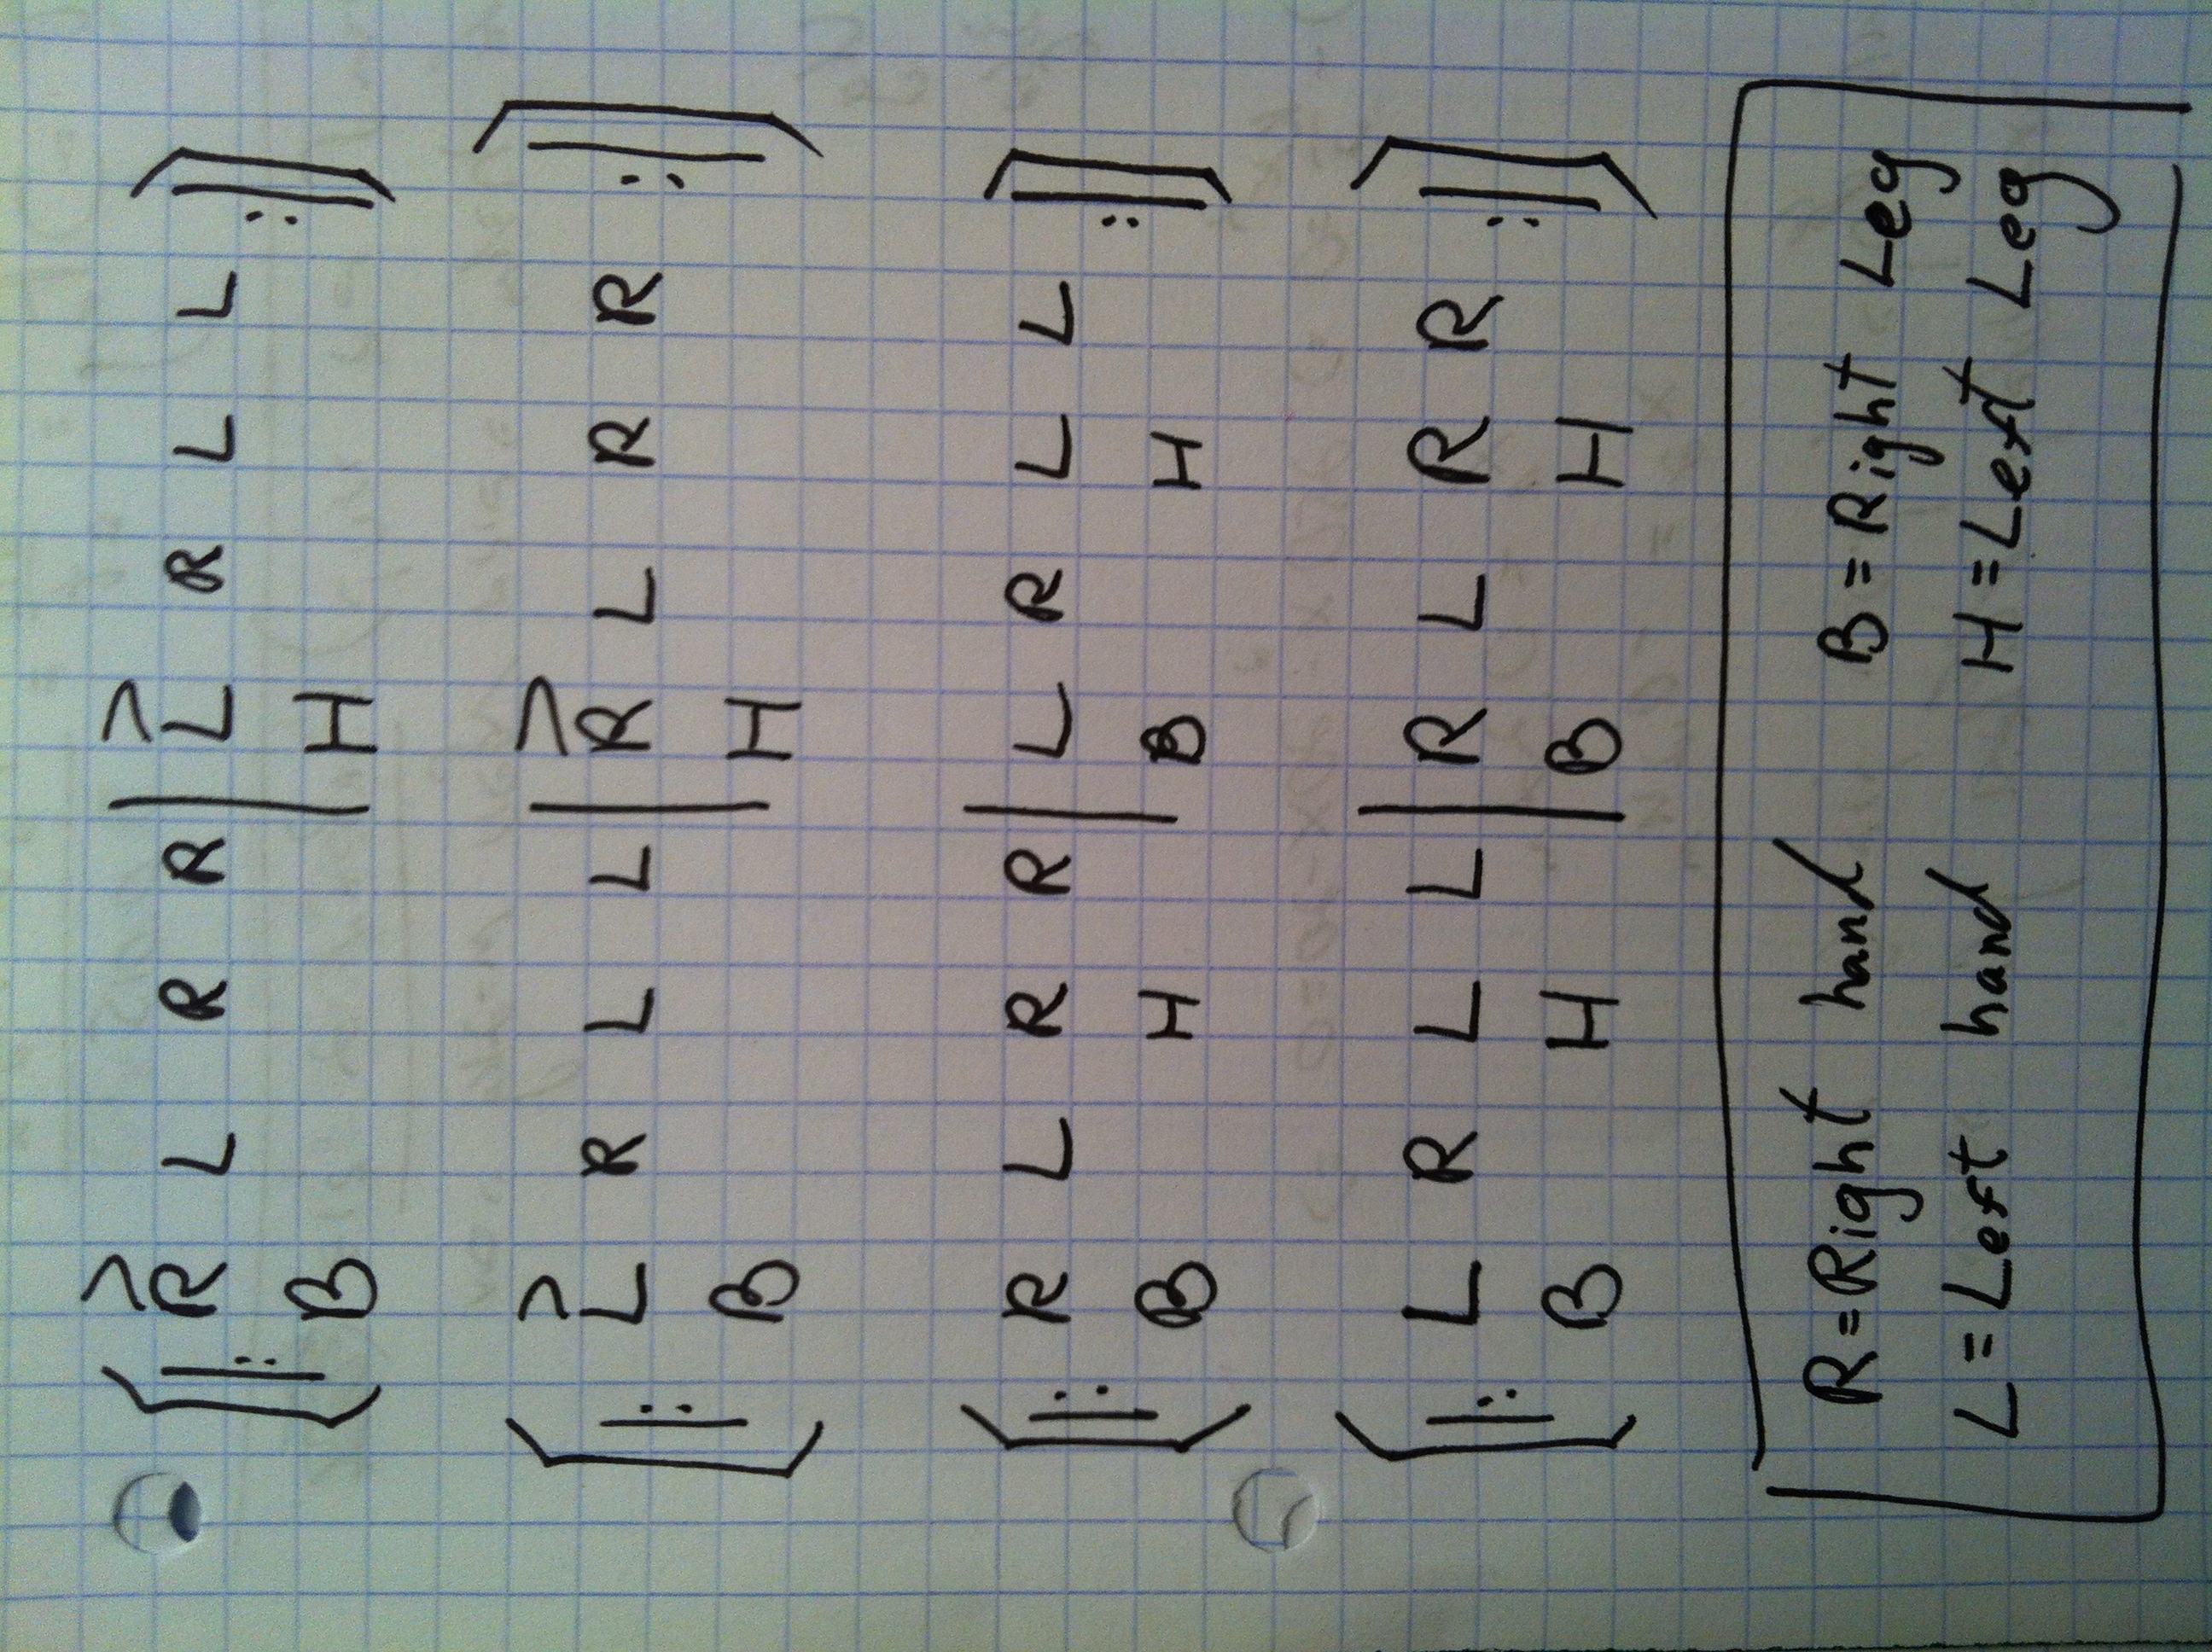 > >
|: R L R R | L R L L :|
B H
> >
|: L R L L | R L R R :|
B H
|: R L R R | L R L L :|
B H B H
|: L R L L | R L R R :|
B H B H
R = Right hand B = Right Leg
L = Left hand H = Left Leg